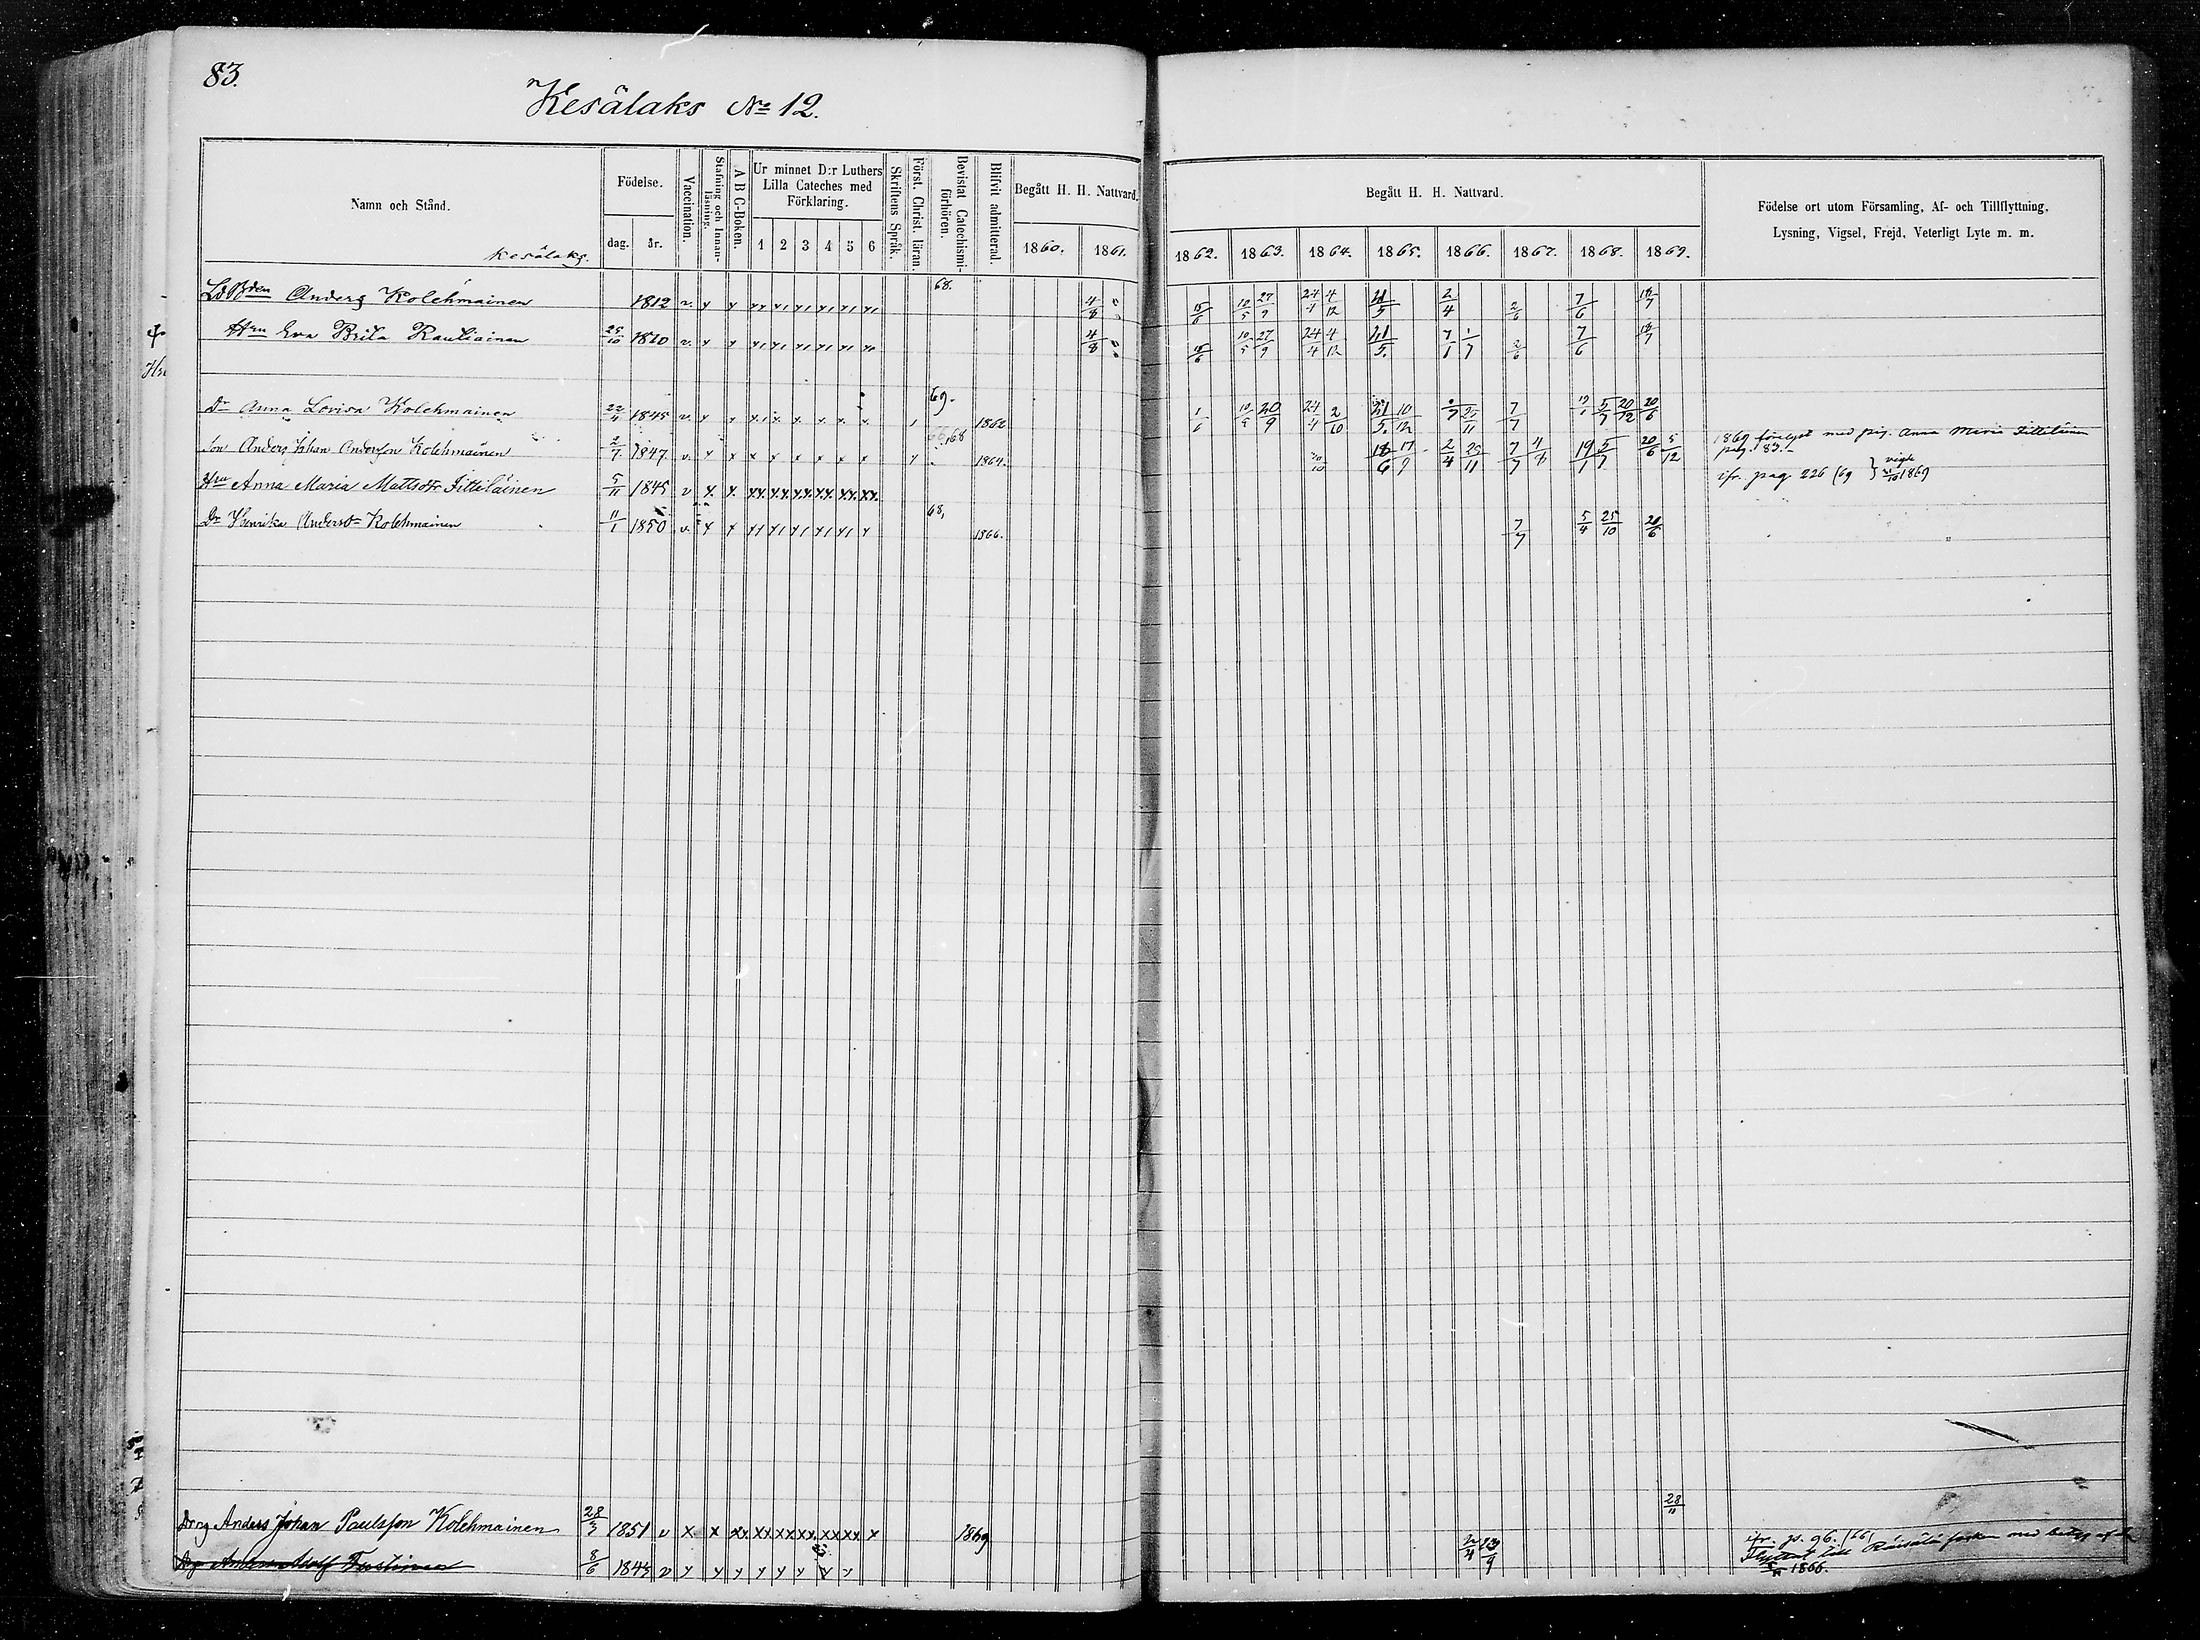 83.
Kesälaks No 12.
Namn och Stånd.
Födelse.
dag. år.
Vaccination.
Stafning och Innanläsning.
A B C-Boken.
Ur minnet D:r Luthers Lilla Cateches med Förklaring.
1 2 3 4 5 6
Skriftens Språk.
Först. Christ. läran.
Bevistat Catechismiförhören.
Blifvit admitterad.
Begått H. H. Nattvard.
1860. 1861.
Begått H. H. Nattvard.
1862. 1863. 1864. 1865. 1866. 1867. 1868. 1869.
Födelse ort utom Församling, Af- och Tillflyttning,
Lysning, Vigsel, Frejd, Veterligt Lyte m. m.
Kesälaks.
LdBden Anders Kolehmainen 1812 v. 68. 4/8 15/6 10/5 27/9 24/4 4/12 21/5 2/4 2/6 7/6 18/7
Hru Eva Brita Rautiainen 25/10 1820 v. 4/8 15/6 10/5 27/9 24/4 4/12 21/5. 7/1 1/7 2/6 7/6 18/7
Dr Anna Lovisa Kolehmainen 22/4 1845 v. 69. 1862 1/6 10/5 20/9 24/4 2/10 21/5. 10/12 25/11 7/7 19/1 5/7 20/12 20/6
Son Anders Johan Andersson Kolehmainen 2/7 1847 v. 68 1864. 20/10 18/6 17/9 2/4 25/11 7/7 4/8 19/1 5/7 20/6 5/12 1869 förelyst med pig. Anna Maria Tittiläinen
pag. 83.
Hru Anna Maria Mattsdtr Tittiläinen 5/11 1845 v ifr. pag 226 (69 } vigde 1869
Dr Henrika Andersdr Kolehmainen 11/1 1850 v. 68, 1866. 7/7 5/4 25/10 20/6
Drng Anders Johan Paulsson Kolehmainen 28/3 1851 v x x xx xx xx xx xx xx x 1869 28/11 ifr. ps. 96. (66)
8/6 1845 v 2/4 23/9 Flyttat till Räisälä 1866.